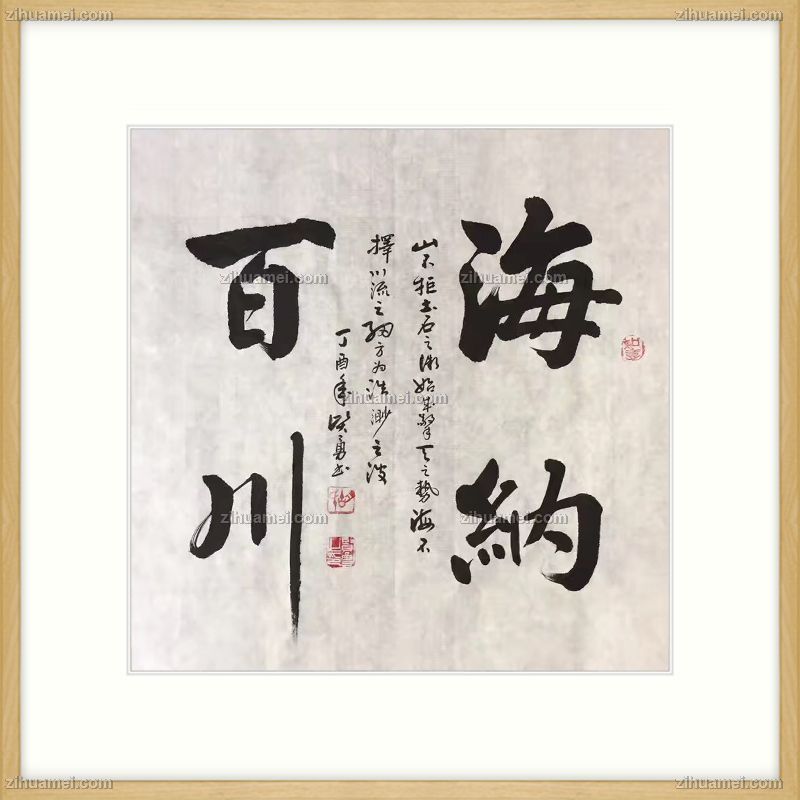 zihuamei.com
zihuamei.com
海納
山不拒土石之微始成擎天之勢海不
擇川流之細方为浩渺之波
丁酉年勇书
百川
zihuamei.com
zihuamei.com
zihuamei.com
zihuamei.com
zihuamei.com
zihuamei.com
zihuamei.com